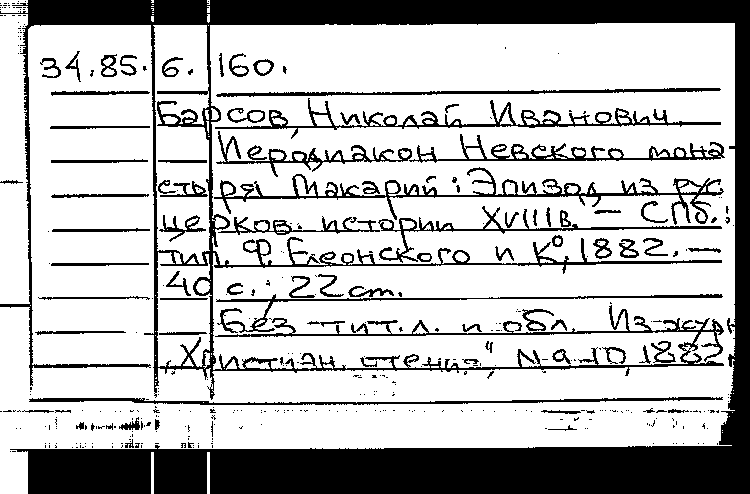 34.85. 6. 160.
Барсов, Николай Иванович.
Иеродиакон Невского мона-
стыря Макарий: Эпизод из рус
церков. истории XVIII в. — СПб.:
тип. Ф. Елеонского и К°, 1882. —
40 с.; 22 cm.
Без тит. л. и обл. Из журн
„Христиан. чтения", N 9-10, 1882.